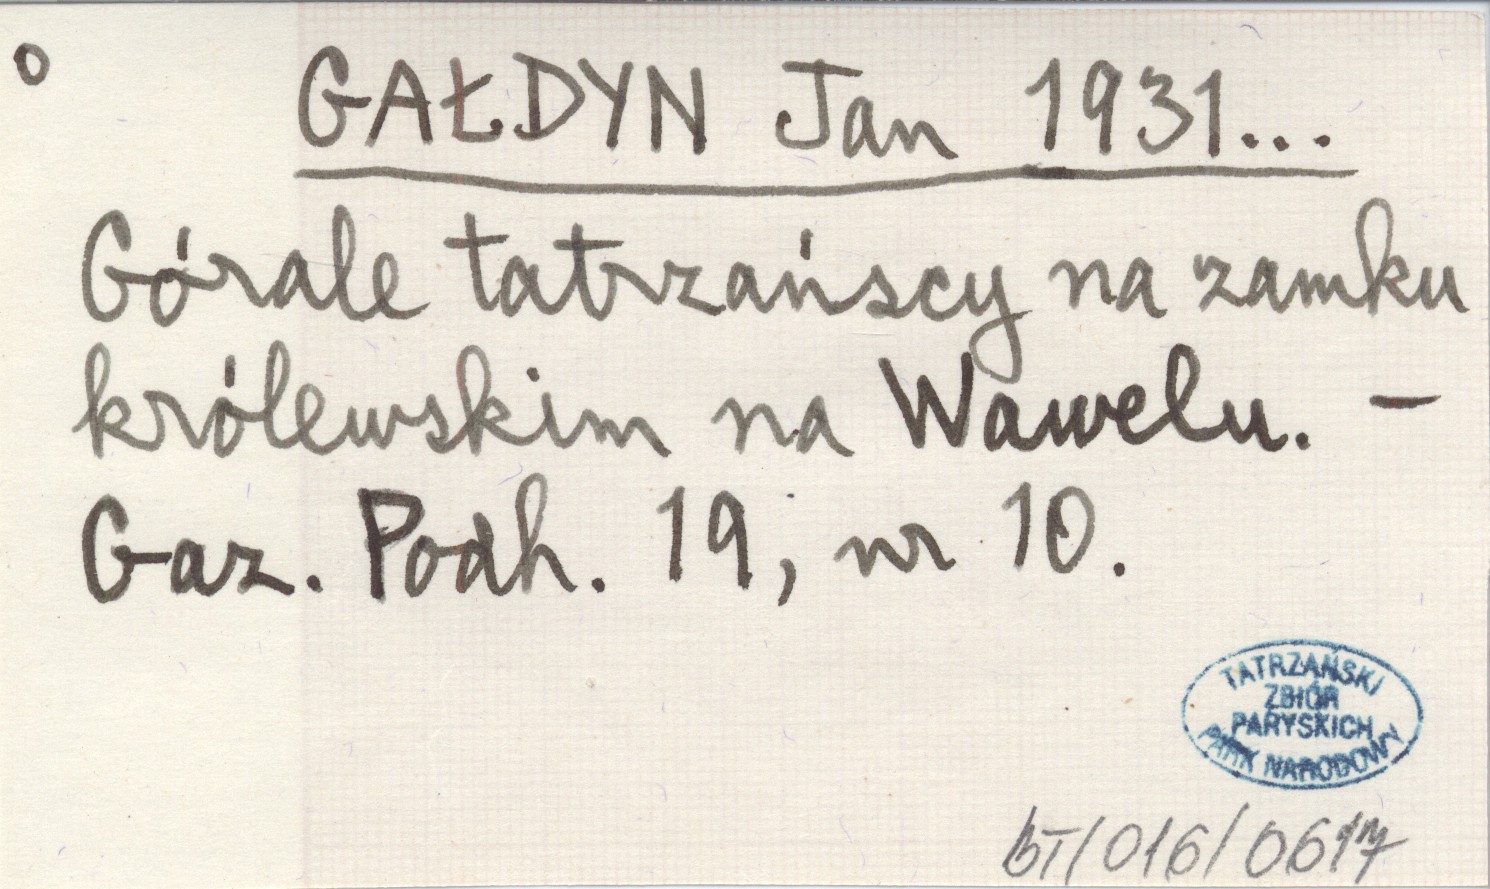 o
GAŁDYN Jan 1931...
Górale tatrzańscy na zamku
królewskim na Wawelu. –
Gaz. Podh. 19, nr 10.
TATRZAŃSKI
ZBIÓR
PARYSKICH
PARK NARODOWY